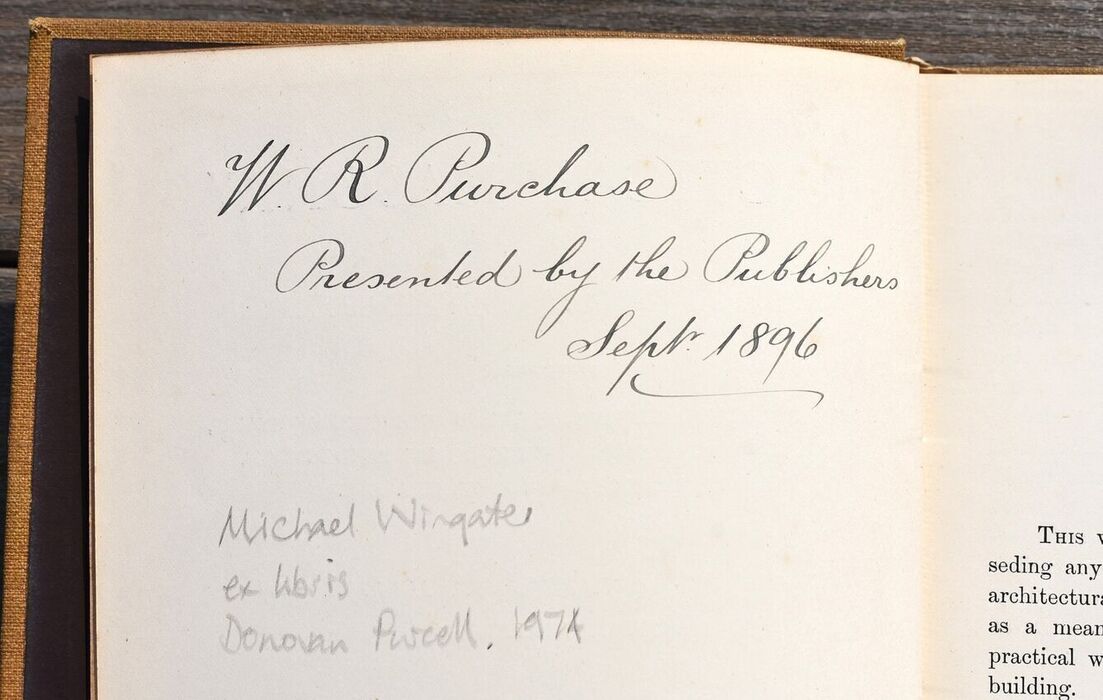 W. R. Purchase
Presented by the Publishers
Septr. 1896
Michael Wingate
ex libris
Donovan Purcell. 1974
THIS
seding any
architectura
as a mean
practical w
building.